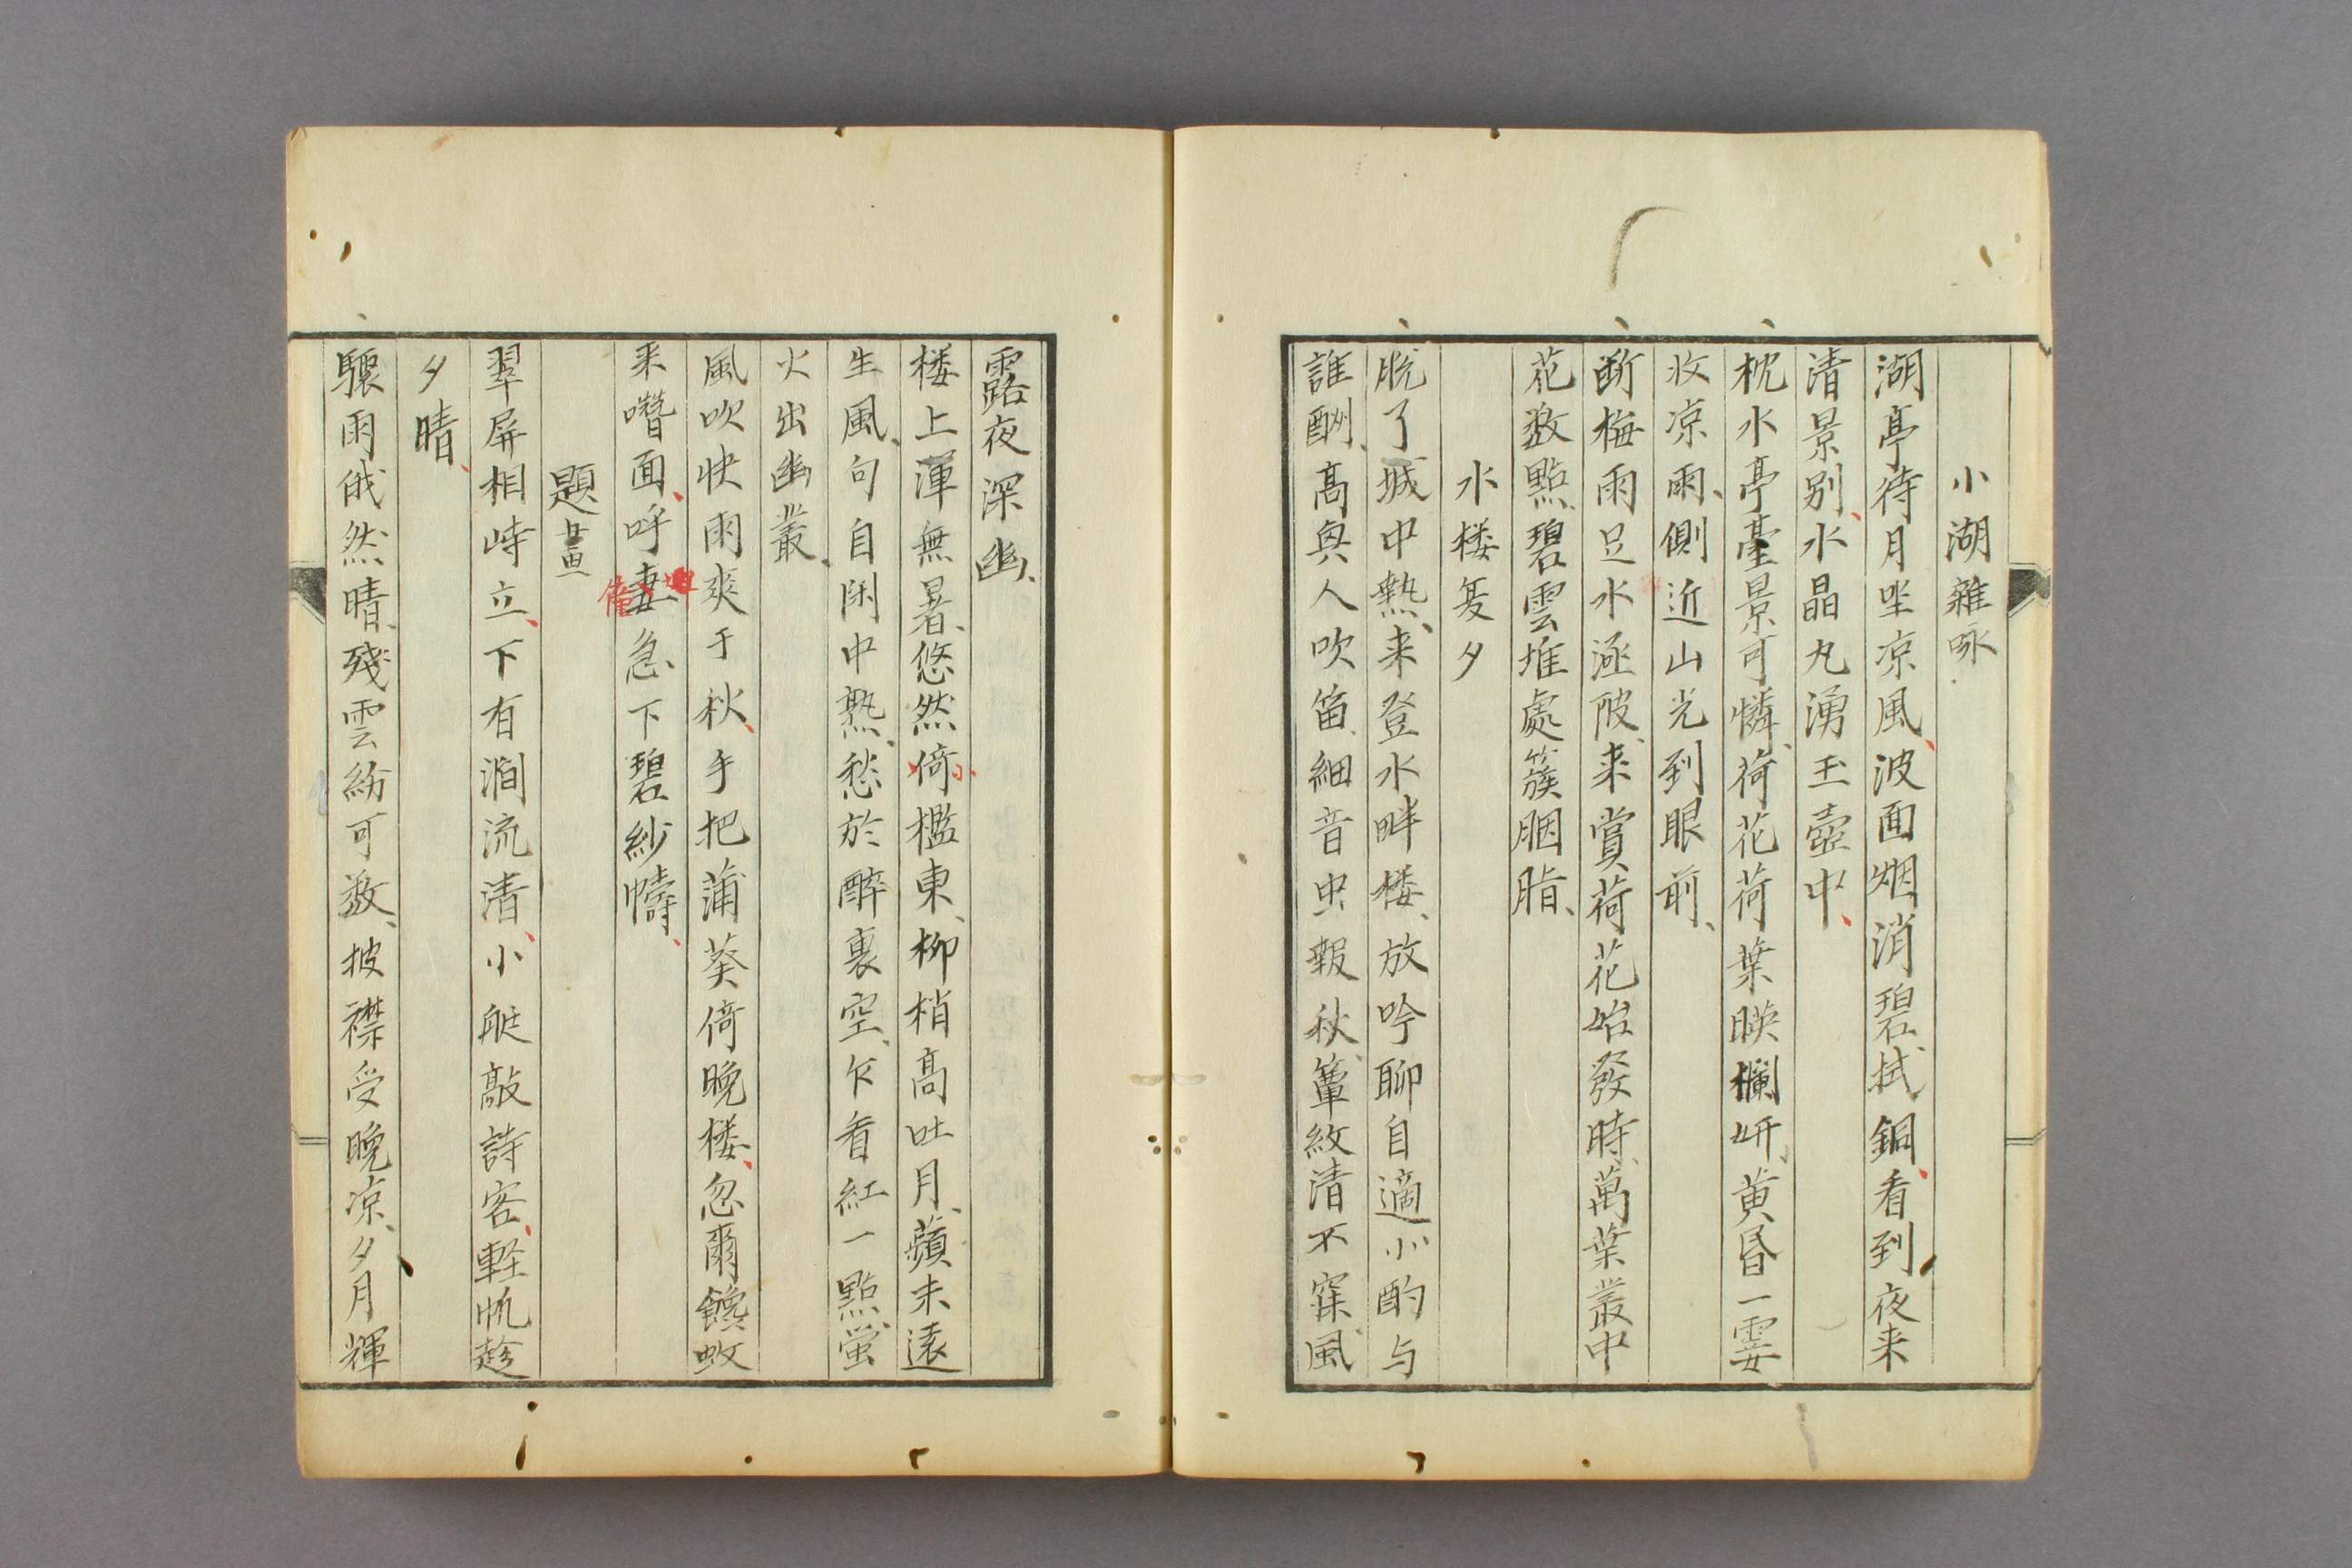 小湖雜咏
湖亭待月坐凉風、波面烟消碧拭銅、看到夜来
清景别、水晶丸湧玉壺中、
枕水亭臺景可憐、荷花荷葉映欄妍、黄昏一霎
收凉雨、側近山光到眼前、
断梅雨足水涵陂、来賞荷花始發時、萬葉叢中
花数點、碧雲堆處簇胭脂、
水楼夏夕
脱了城中熱、来登水畔楼、放吟聊自適、小酌与
誰酬、高興人吹笛、細音虫報秋、簟紋清不寐、風
露夜深幽、
楼上渾無暑、悠然倚檻東、柳梢高吐月、蘋末遠
生風、句自閑中熟、愁於醉裏空、乍看紅一點、螢
火出幽叢、
風吹快雨爽于秋、手把蒲葵倚晩楼、忽爾饞蚊
来噆面、呼妻急下碧紗幬、
題畫
翠屏相峙立、下有澗流清、小艇敲詩客、軽帆趁
夕晴、
驟雨俄然晴、殘雲紛可数、披襟受晩凉、夕月輝